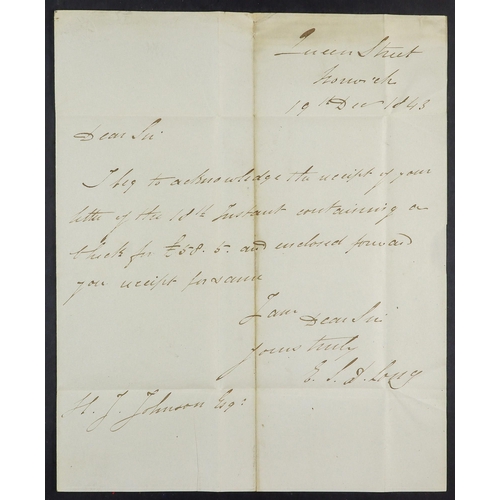 Queen Street
Norwich
19th Decr 1843
Dear Sir
I beg to acknowledge the receipt of your
letter of the 18th Instant containing a
Check for £58. 5. and enclosed forward
you receipt for same
I am
Dear Sir
Yours truly
Long
H. J. Johnson Esqr